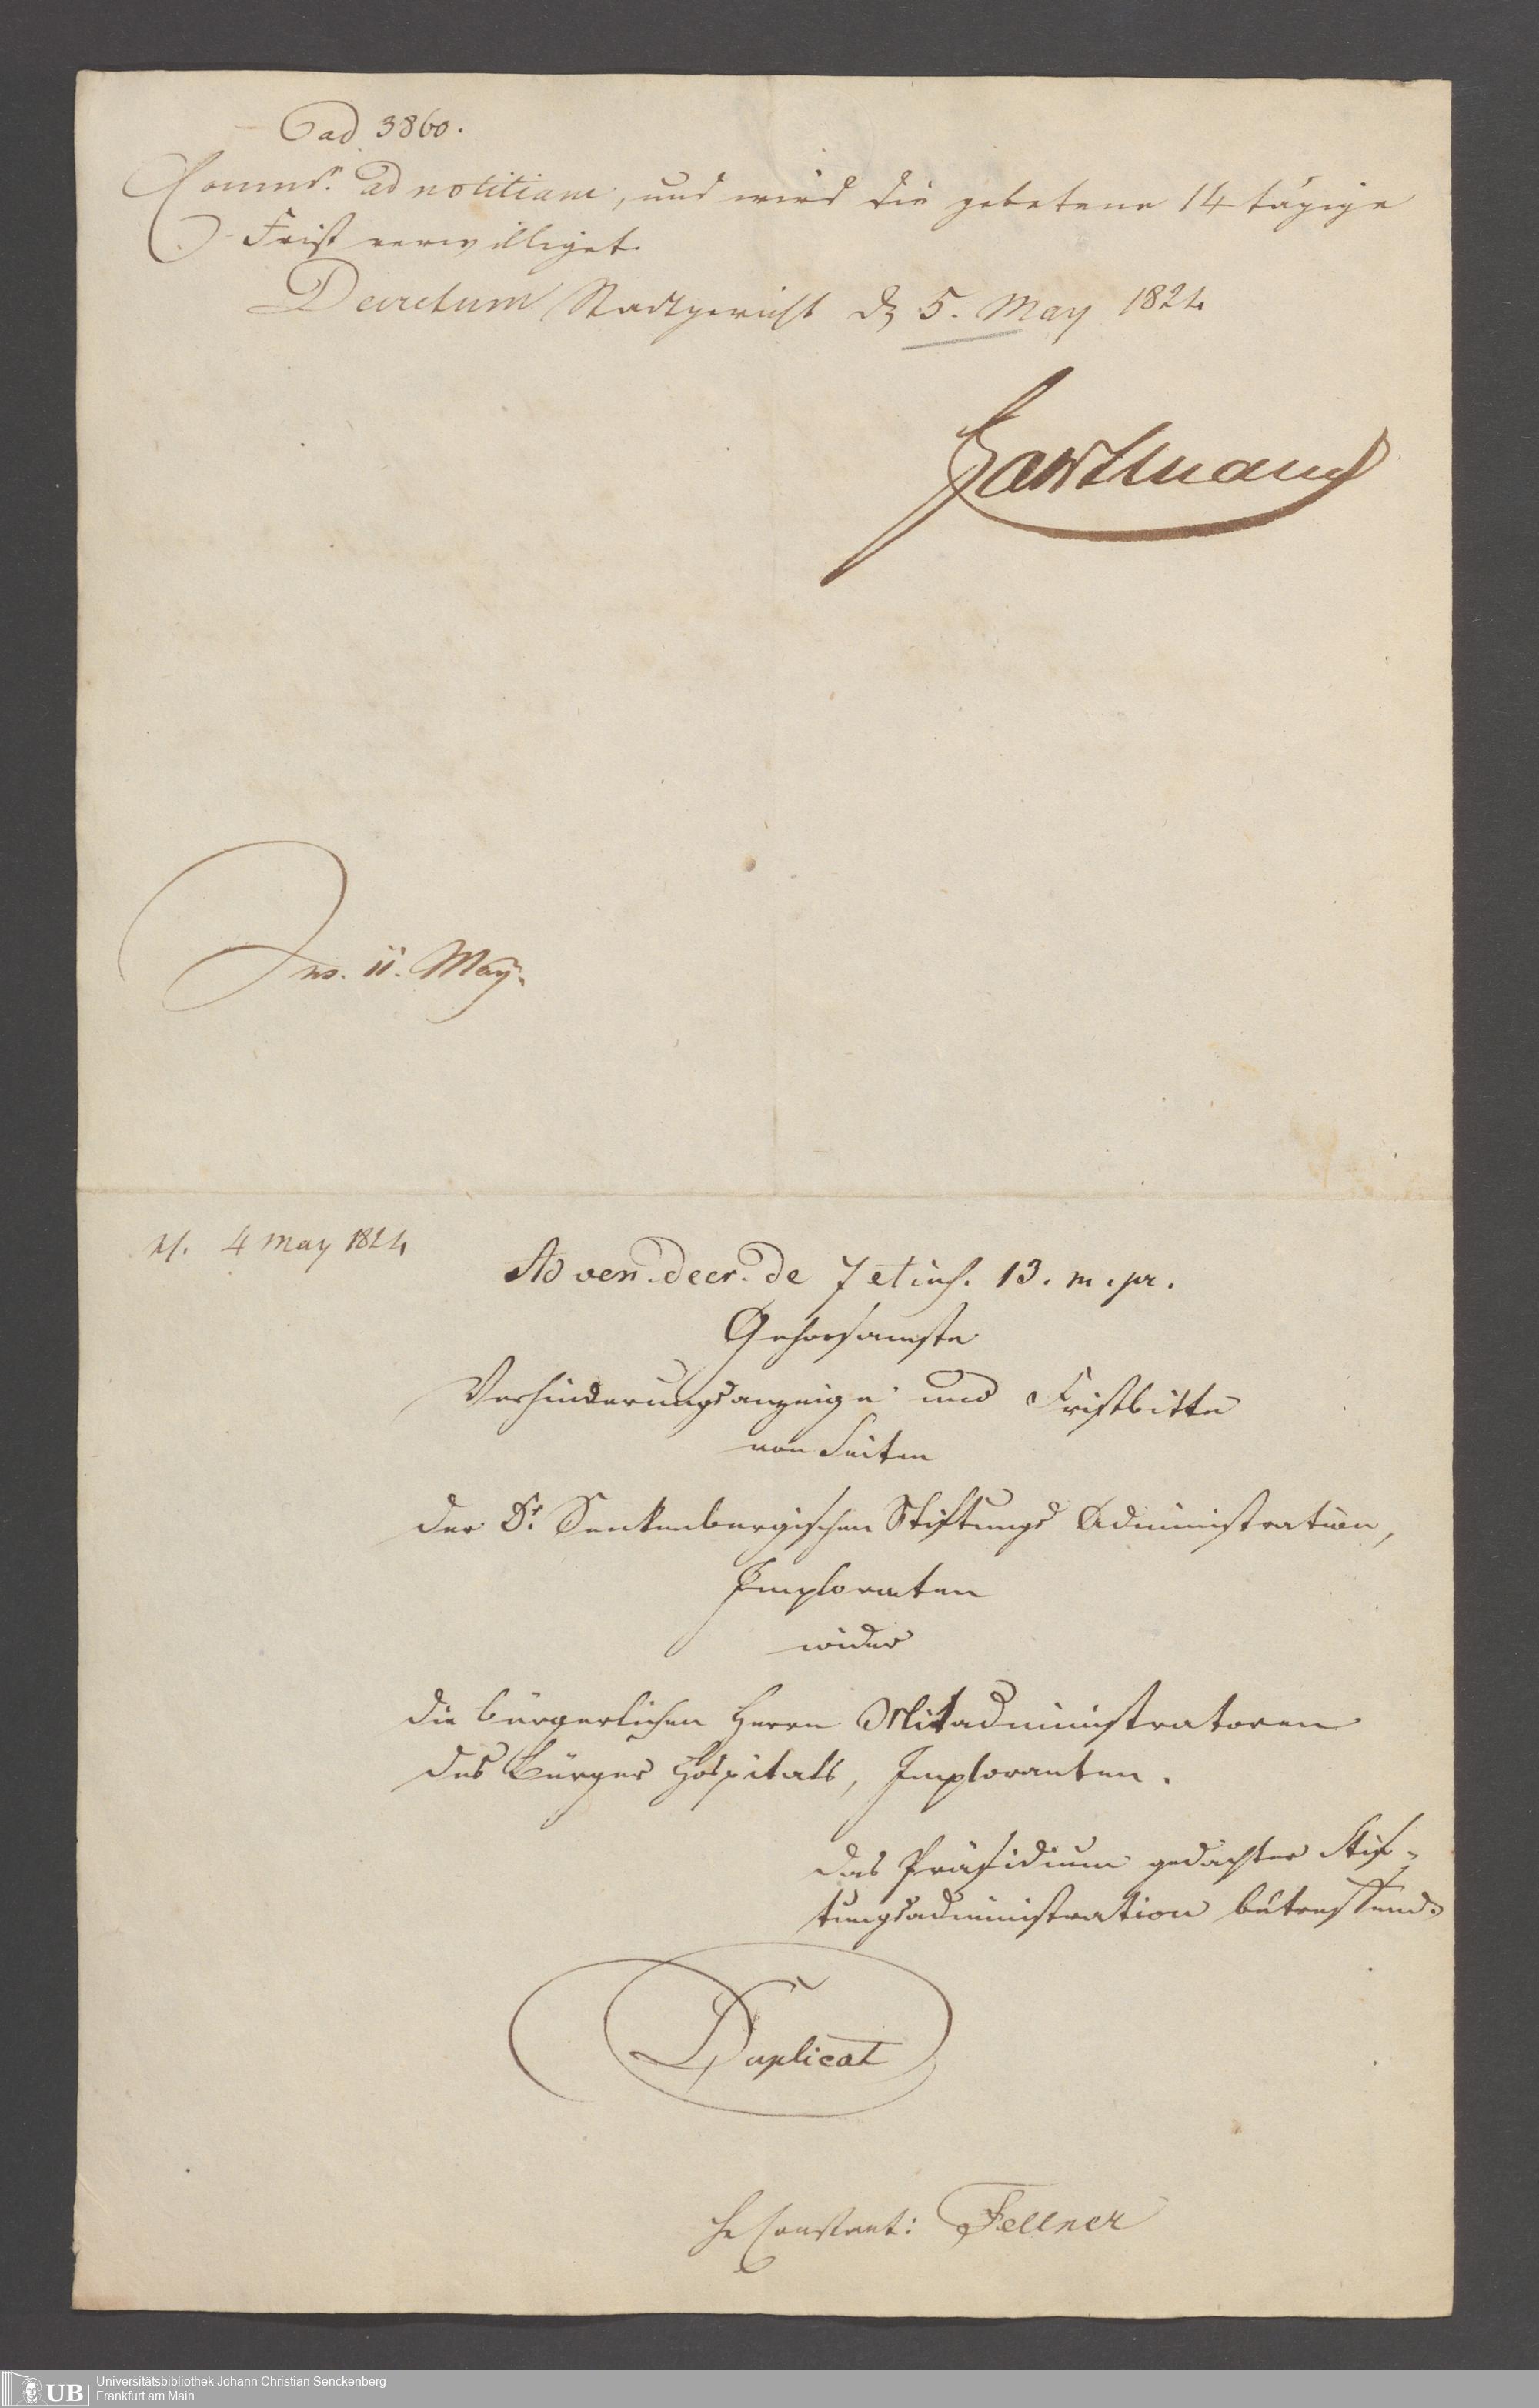 ad 3860.
Commr. ad notitiam, und wird die gebetene 14 tägige
Frist verwilliget.
Decretum Stadtgericht d. 5. May 1824
Hartmann
Ins. 11. May.
4 May 1824
Ad ven. decr. de 7 et ins. 13. m. pr.
Gehorsamste
Verhinderungsanzeige und Fristbitte
von Seiten
der Dr. Senkenbergischen Stiftungs Administration,
Imploraten
wider
die bürgerlichen Herrn Mitadministratoren
des Bürger Hospitals, Imploranten.
das Präsidium gedachter Stif-
tungsadministration betreffend.
Duplicat
Constant: Fellner
Universitätsbibliothek Johann Christian Senckenberg
Frankfurt am Main
UB